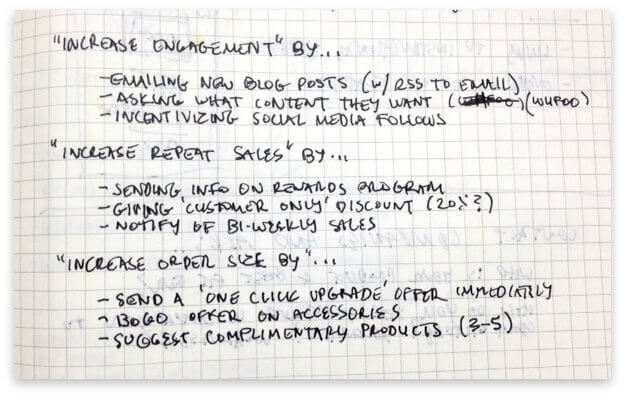 "INCREASE ENGAGEMENT" BY...
- EMAILING NEW BLOG POSTS (W/ RSS TO EMAIL)
- ASKING WHAT CONTENT THEY WANT (WUFOO)
- INCENTIVIZING SOCIAL MEDIA FOLLOWS
"INCREASE REPEAT SALES" BY...
- SENDING INFO ON REWARDS PROGRAM
- GIVING 'CUSTOMER ONLY' DISCOUNT (20%?)
- NOTIFY OF BI-WEEKLY SALES
"INCREASE ORDER SIZE BY"...
- SEND A 'ONE CLICK UPGRADE' OFFER IMMEDIATLY
- BOGO OFFER ON ACCESSORIES
- SUGGEST COMPLIMENTARY PRODUCTS (3-5)